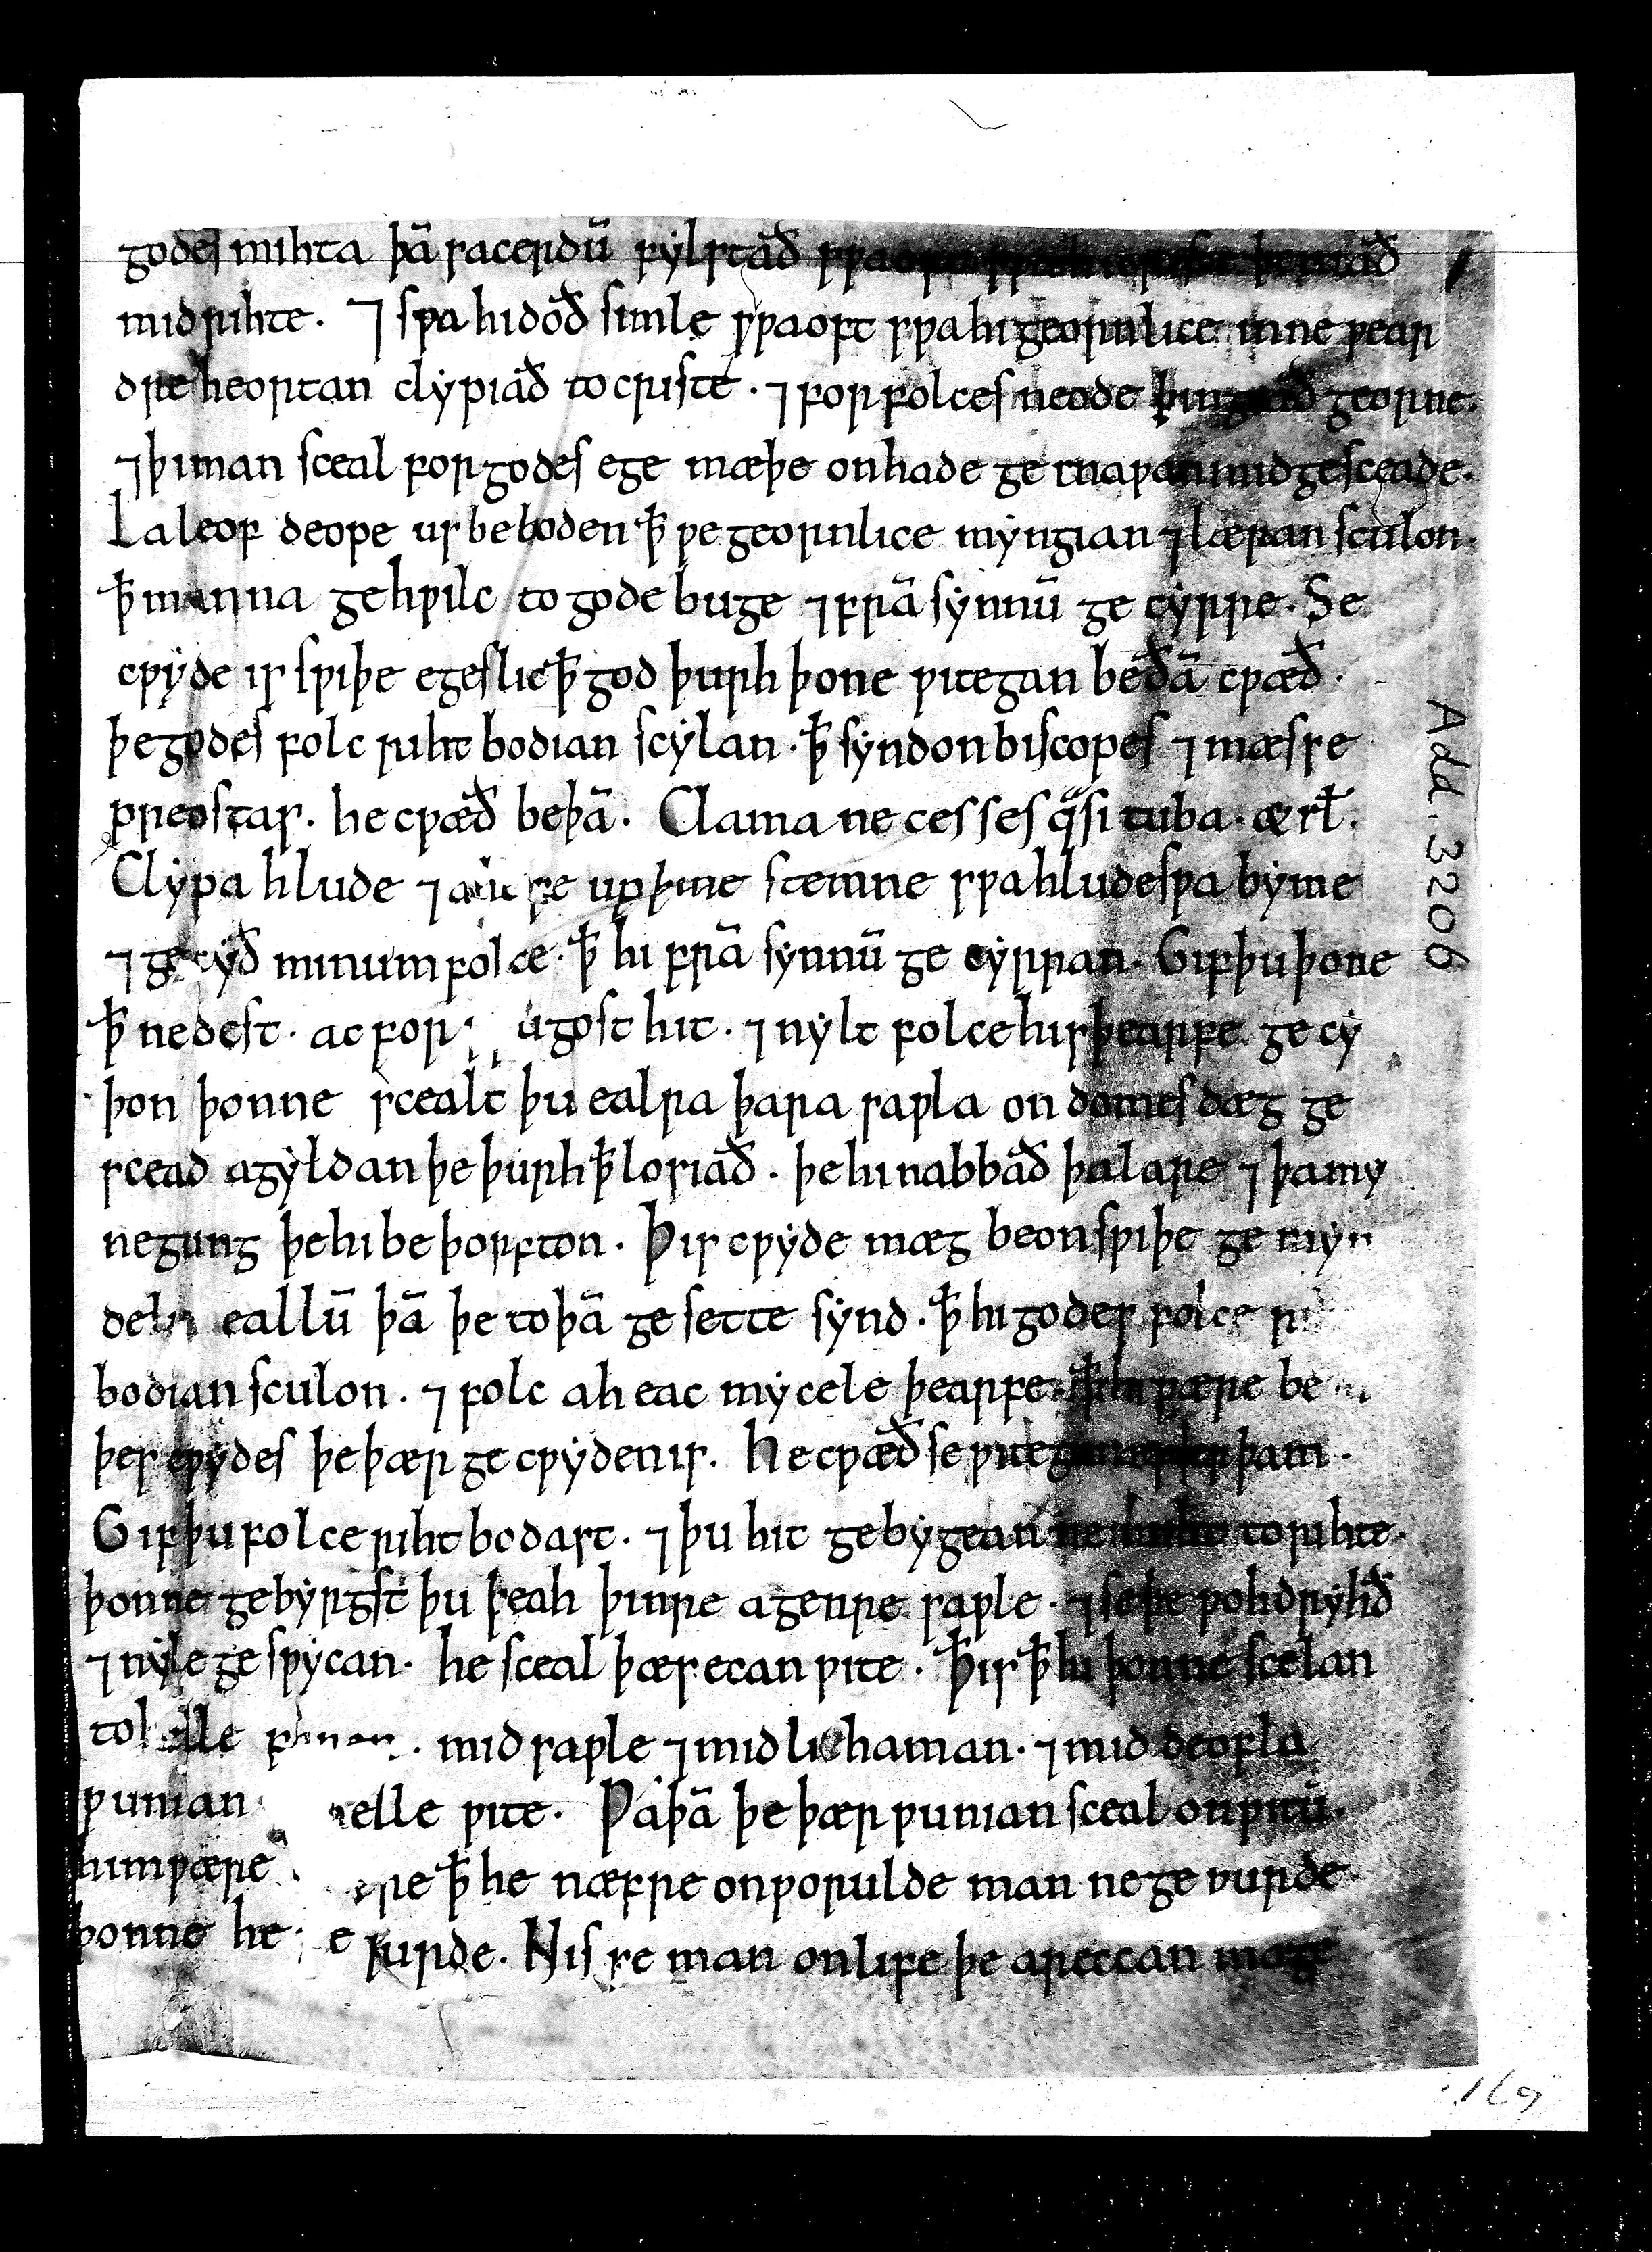 godes mihta þā sacerdū fylstað swa oft swa hi criste þeniað
mid rihte. ⁊ swa hi doð simle swa oft swa hi geornlice inne wear
dre heortan clypiað to criste. ⁊ for folces neode þingiað georne.
⁊ þi man sceal for godes ege mæþe on hade ge cnawan mid gesceade.
La leof deope us beboden ꝥ we geornlice myngian ⁊ læran sculon.
ꝥ manna gehwilc to gode buge ⁊ frā synnū ge cyrre. Se
cwyde is swiþe egeslic ꝥ god þurh þone witegan be ðā cwæð.
þe godes folc riht bodian scylan. ꝥ syndon biscopes ⁊ mæsse
preostas. he cwæð be þā. Clama ne cesses q̄si tuba. & rł.
Clypa hlude ⁊ ahefe up þine stemne swa hlude swa byme
⁊ ge cyð minum folce. ꝥ hi frā synnū ge cyrran. Gif þu þone
ꝥ ne dest. ac for ugost hit. ⁊ nylt folce his þearfe ge cy
þon þonne scealt þu ealra þara sawla on domes dæg ge
scead agyldan þe þurh ꝥ losiað. þe hi nabbað þa lare ⁊ þa my
negung þe hi be þorfton. Þis cwyde mæg beon swiþe ge myn
delic eallū þā þe to þā ge sette synd. ꝥ hi godes folce ri
bodian sculon. ⁊ folc ah eac mycele þearfe. ꝥ hi wære be
þes cwydes þe þær ge cwyden is. He cwæð se witega æfter þam.
Gif þu folce riht bodast. ⁊ þu hit gebygean ne miht to rihte.
þonne gebyrgst þu þeah þinre agenre sawle. ⁊ se þe woh dryhð
⁊ nyle ge swycan. he sceal þæs ecan wite. Þ is ꝥ hi þonne scelan
to helle faran. mid sawle ⁊ mid lichaman. ⁊ mid deofla
wunian helle wite. Wa þā þe þær wunian sceal on witū.
him wære ere ꝥ he næfre on worulde man ne ge wurde
þonne he e wurde. Nis se man on life þe areccan mage
Add. 3206
169